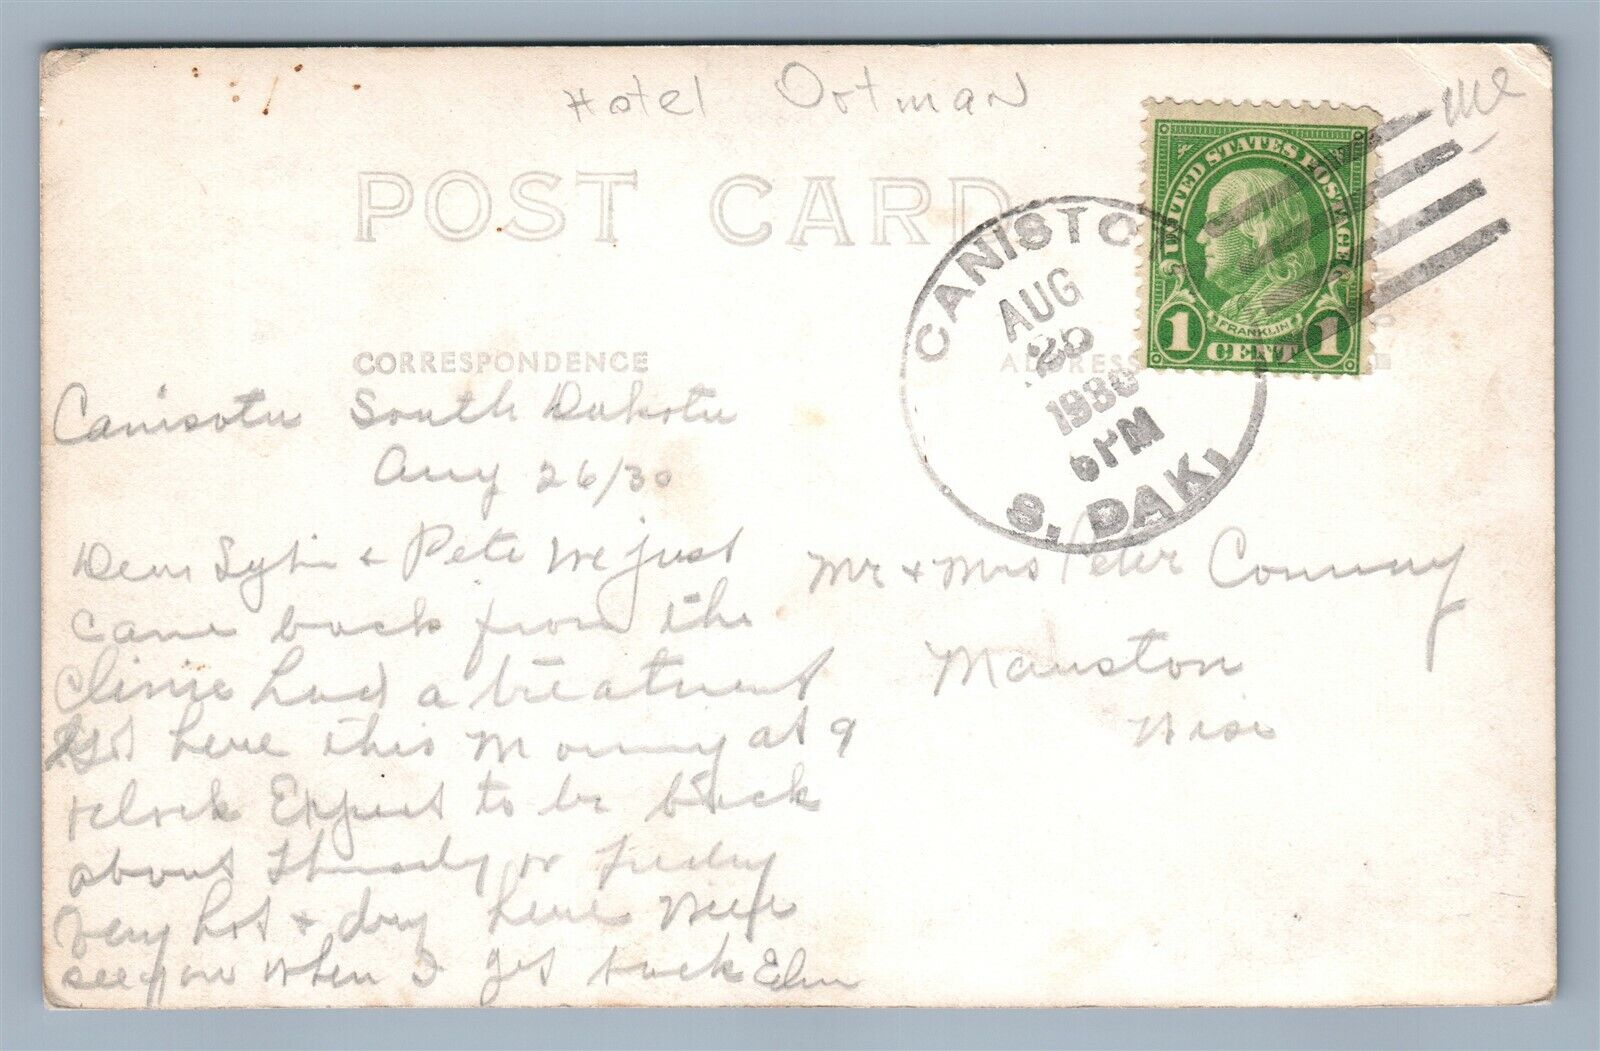 Hotel Ortman
POST CARD
UNITED STATES POSTAGE
FRANKLIN
1 CENT 1
CANISTO
AUG
26
1930
6 PM
S. DAK.
CORRESPONDENCE
ADDRESS
Canisota South Dakota
Aug 26/30
Dear & Pete We just
came back from the
Clinic had a treatment
Got here this Morning at 9
oclock Expect to be back
about Thursday or Friday
Very hot & dry here Will
see you when I get back
Mr & Mrs Peter Conway
Mauston
Wisc